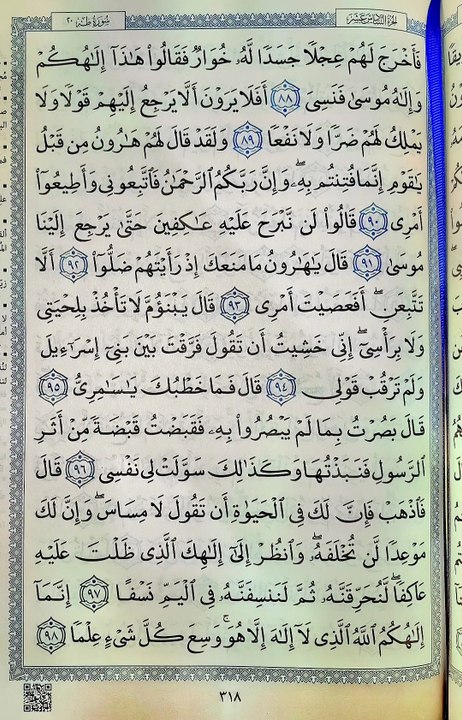 سُورَةُ طه ٢٠ الجُزْءُ السَّادِسَ عَشَرَ
فَأَخْرَجَ لَهُمْ عِجْلًا جَسَدًا لَّهُۥ خُوَارٌ فَقَالُوا۟ هَٰذَآ إِلَٰهُكُمْ
وَإِلَٰهُ مُوسَىٰ فَنَسِىَ ٨٨ أَفَلَا يَرَوْنَ أَلَّا يَرْجِعُ إِلَيْهِمْ قَوْلًا وَلَا
يَمْلِكُ لَهُمْ ضَرًّا وَلَا نَفْعًا ٨٩ وَلَقَدْ قَالَ لَهُمْ هَٰرُونُ مِن قَبْلُ
يَٰقَوْمِ إِنَّمَا فُتِنتُم بِهِۦ ۖ وَإِنَّ رَبَّكُمُ ٱلرَّحْمَٰنُ فَٱتَّبِعُونِى وَأَطِيعُوٓا۟
أَمْرِى ٩٠ قَالُوا۟ لَن نَّبْرَحَ عَلَيْهِ عَٰكِفِينَ حَتَّىٰ يَرْجِعَ إِلَيْنَا
مُوسَىٰ ٩١ قَالَ يَٰهَٰرُونُ مَا مَنَعَكَ إِذْ رَأَيْتَهُمْ ضَلُّوٓا۟ ٩٢ أَلَّا
تَتَّبِعَنِ ۖ أَفَعَصَيْتَ أَمْرِى ٩٣ قَالَ يَبْنَؤُمَّ لَا تَأْخُذْ بِلِحْيَتِى
وَلَا بِرَأْسِىٓ ۖ إِنِّى خَشِيتُ أَن تَقُولَ فَرَّقْتَ بَيْنَ بَنِىٓ إِسْرَٰٓءِيلَ
وَلَمْ تَرْقُبْ قَوْلِى ٩٤ قَالَ فَمَا خَطْبُكَ يَٰسَٰمِرِىُّ ٩٥
قَالَ بَصُرْتُ بِمَا لَمْ يَبْصُرُوا۟ بِهِۦ فَقَبَضْتُ قَبْضَةً مِّنْ أَثَرِ
ٱلرَّسُولِ فَنَبَذْتُهَا وَكَذَٰلِكَ سَوَّلَتْ لِى نَفْسِى ٩٦ قَالَ
فَٱذْهَبْ فَإِنَّ لَكَ فِى ٱلْحَيَوٰةِ أَن تَقُولَ لَا مِسَاسَ ۖ وَإِنَّ لَكَ
مَوْعِدًا لَّن تُخْلَفَهُۥ ۖ وَٱنظُرْ إِلَىٰٓ إِلَٰهِكَ ٱلَّذِى ظَلْتَ عَلَيْهِ
عَاكِفًا ۖ لَّنُحَرِّقَنَّهُۥ ثُمَّ لَنَنسِفَنَّهُۥ فِى ٱلْيَمِّ نَسْفًا ٩٧ إِنَّمَآ
إِلَٰهُكُمُ ٱللَّهُ ٱلَّذِى لَآ إِلَٰهَ إِلَّا هُوَ ۚ وَسِعَ كُلَّ شَىْءٍ عِلْمًا ٩٨
٣١٨